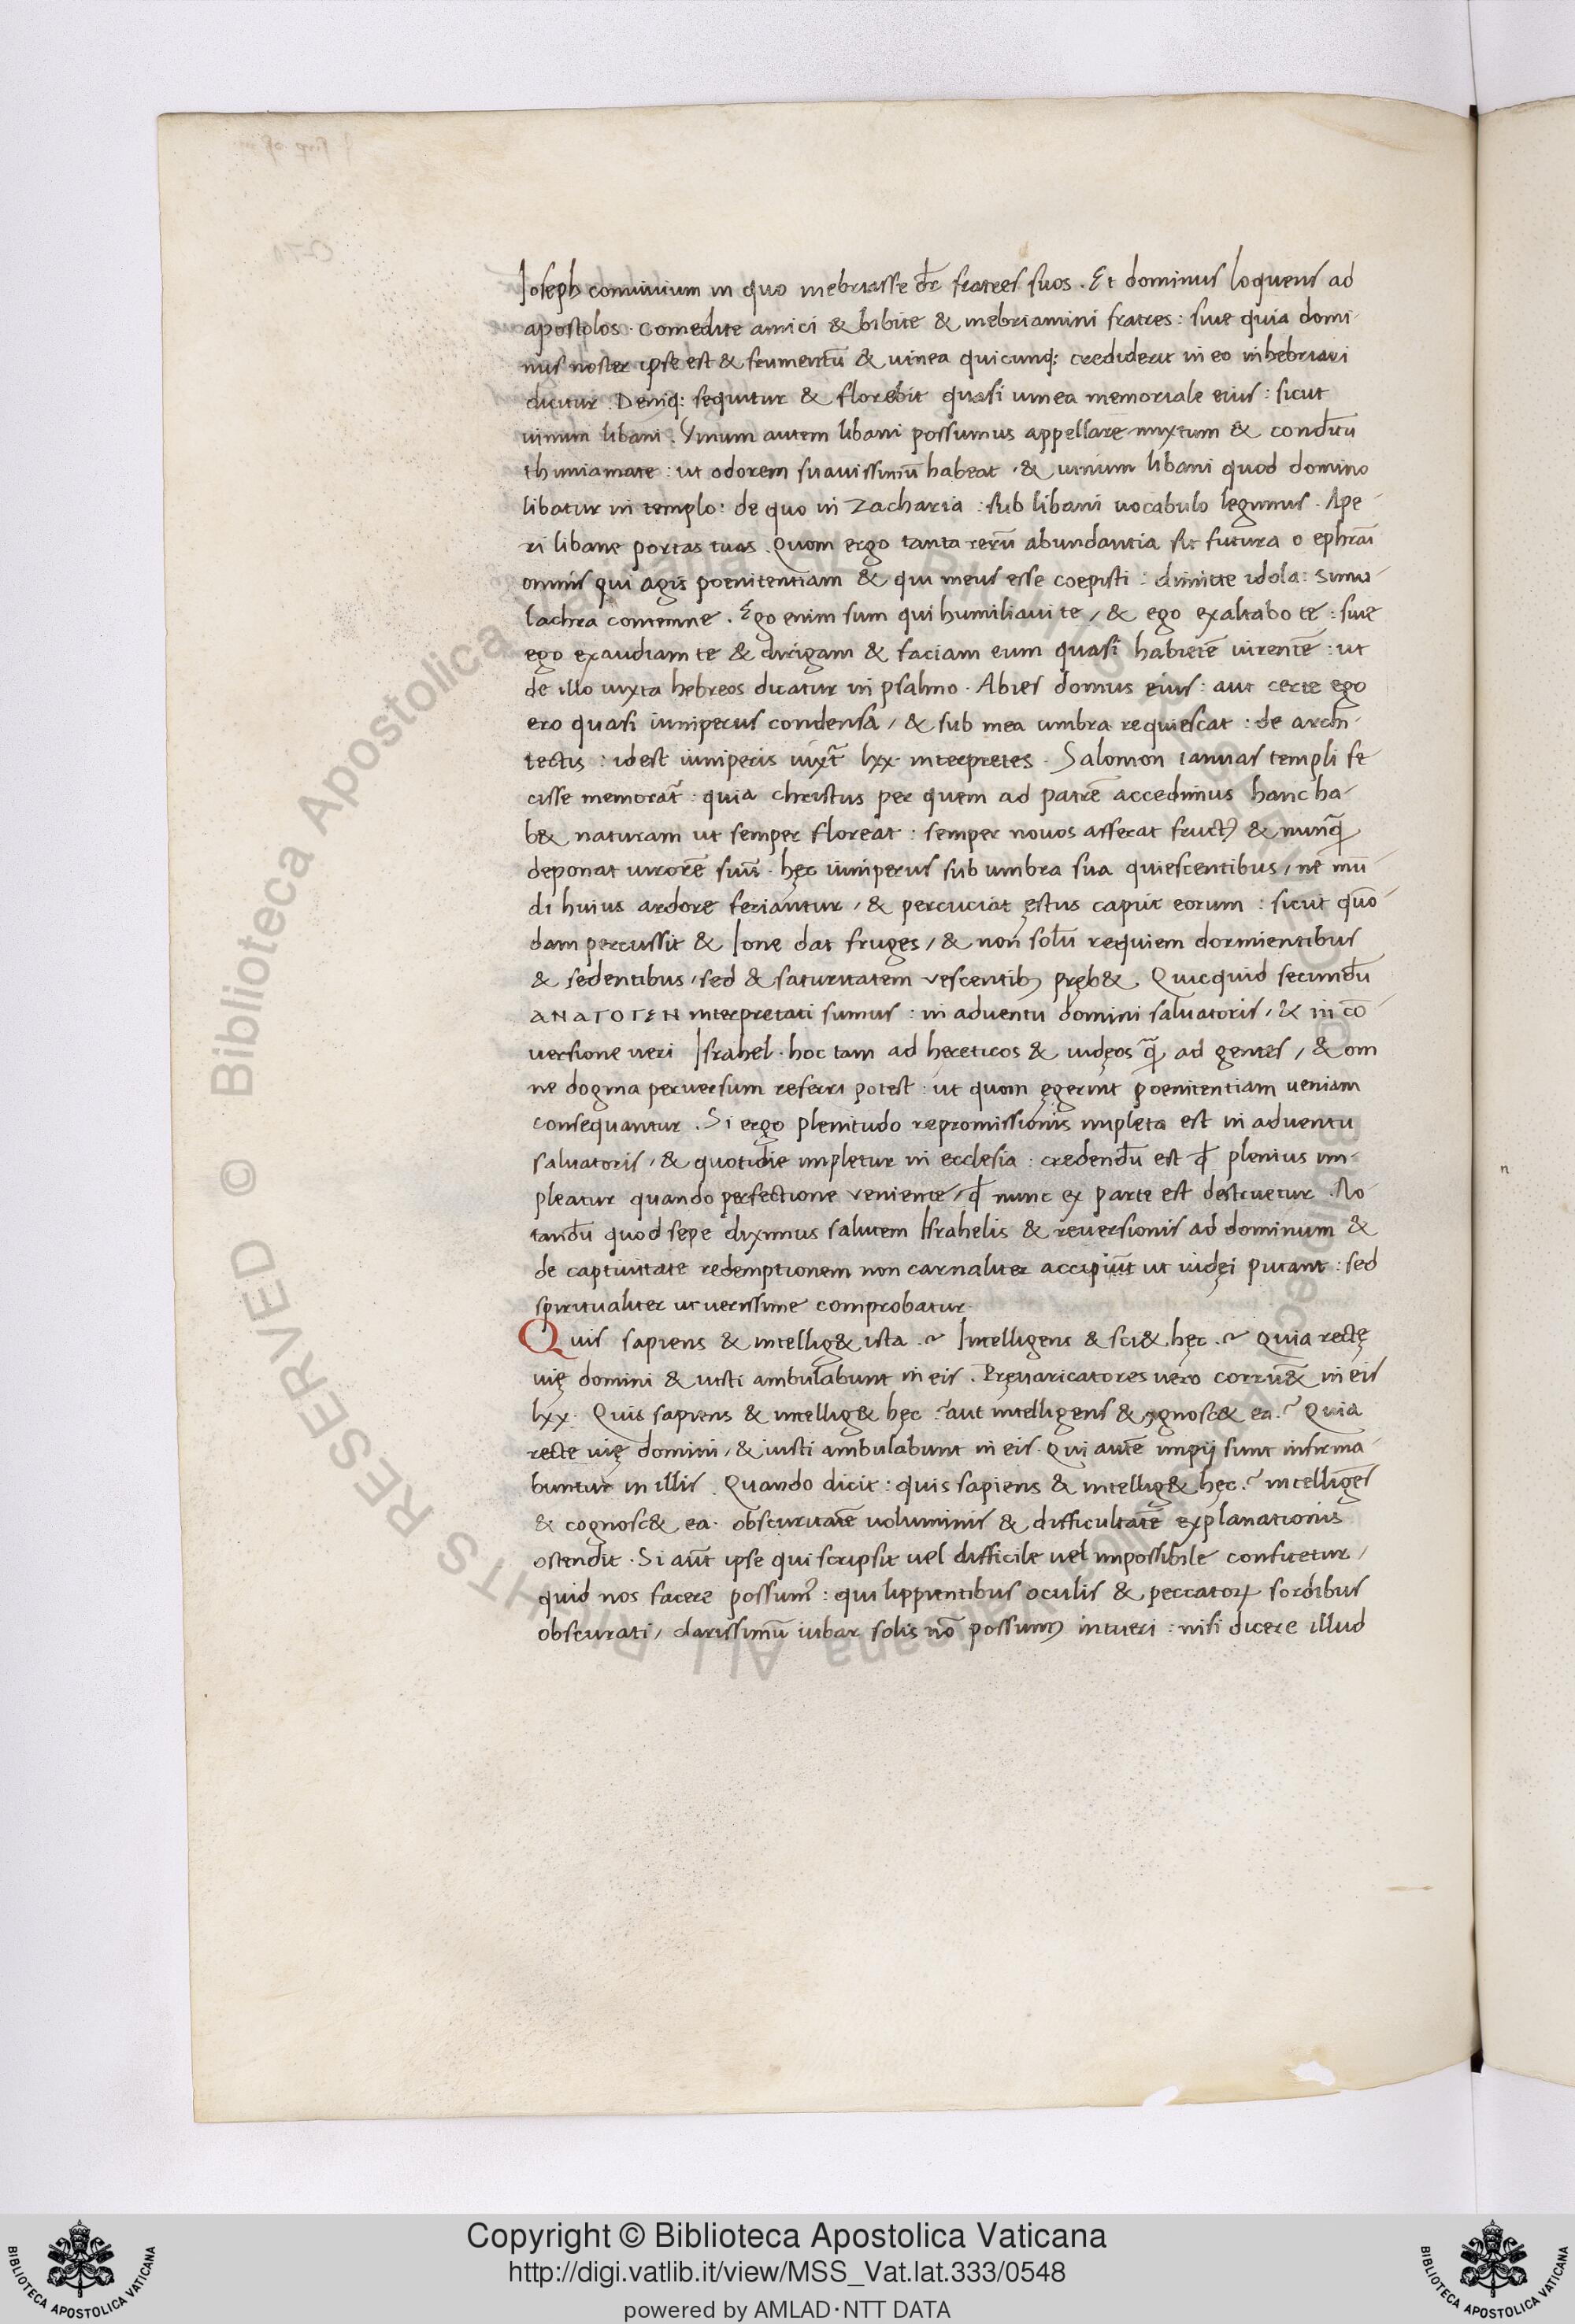 Joseph conuiuium in quo inebriasse dr̄ fratres suos . Et dominus loquens ad
apostolos . comedite amici & bibite & inebriamini fratres : siue quia domi-
nus noster ipse est & frumentū & uinea quicunq; crediderit in eo inhebriari
dicitur . Deniq; sequitur & florebit quasi uinea memoriale eius : sicut
uinum libani . Vinum autem libani possumus appellare mixtum & conditū
thimiamate : ut odorem suauissimū habeat , & uinum libani quod domino
libatur in templo : de quo in Zacharia : sub libani uocabulo legimus . Ape-
ri libane portas tuas . Quom ergo tanta rerū abundantia sit futura o ephraī
omnis qui agis poenitentiam & qui meus esse coepisti : dimitte idola : simu-
lachra contemne . Ego enim sum qui humiliaui te , & ego exaltabo te : siue
ego exaudiam te & dirigam & faciam eum quasi habietē uirentē : ut
de illo iuxta hebreos dicatur in psalmo . Abies domus eius : aut certe ego
ero quasi iuniperus condensa , & sub mea umbra requiescat : de archi-
tectis : idest iuniperis iuxt̄ lxx . interpretes . Salomon ianuas templi fe-
cisse memorat̄ : quia christus per quem ad patrē accedimus hanc ha-
b& naturam ut semper floreat : semper nouos afferat fruct9 & nunq̄
deponat uirorē suū . hęc iuniperus sub umbra sua quiescentibus , ne mū-
di huius ardore feriantur , & percuciat ęstus caput eorum : sicut quō-
dam percussit & Ione dat fruges , & non solū requiem dormientibus
& sedentibus , sed & saturitatem vescentib9 pręb& . Quicquid secundū
ΑΝΑΓΟΓΕΝ interpretati sumus : in aduentu domini saluatoris , & in cō-
uersione ueri Israhel . hoc tam ad hereticos & iudęos q̄ ad gentes , & om
ne dogma peruersum referri potest : ut quom ęgerint poenitentiam ueniam
consequantur . Si ergo plenitudo repromissionis impleta est in aduentu
saluatoris , & quotidie impletur in ecclesia : credendū est qd̄ plenius im-
pleatur quando perfectione veniente , qd̄ nunc ex parte est destruetur . No-
tandū quod sepe diximus salutem Israhelis & reuersionis ad dominum &
de captiuitate redemptionem non carnaliter accipiūt ut iudęi putant : sed
spiritualiter ut uerissime comprobatur .
Quis sapiens & intellig& ista .? Intelligens & sci& hęc .? Quia rectę
uię domini & iusti ambulabunt in eis . Pręuaricatores uero corru&̄ in eis
lxx . Quis sapiens & intellig& hęc .? aut intelligens & ɔgnosc& ea .? Quia
recte uię domini , & iusti ambulabunt in eis . Qui autē impij sunt infirma-
buntur in illis . Quando dicit : quis sapiens & intellig& hęc .? intelligēs
& cognosc& ea . obscuritatē uoluminis & difficultatē explanationis
ostendit . Si aūt ipse qui scripsit uel difficile uel impossibile confitetur ,
quid nos facere possum9 : qui lippientibus oculis & peccatoꝝ sordibus
obscurati , clarissimū iubar solis nō possum9 intueri : nisi dicere illud
n
Copyright © Biblioteca Apostolica Vaticana
http://digi.vatlib.it/view/MSS_Vat.lat.333/0548
powered by AMLAD·NTT DATA
BIBLIOTECA APOSTOLICA VATICANA
BIBLIOTECA APOSTOLICA VATICANA